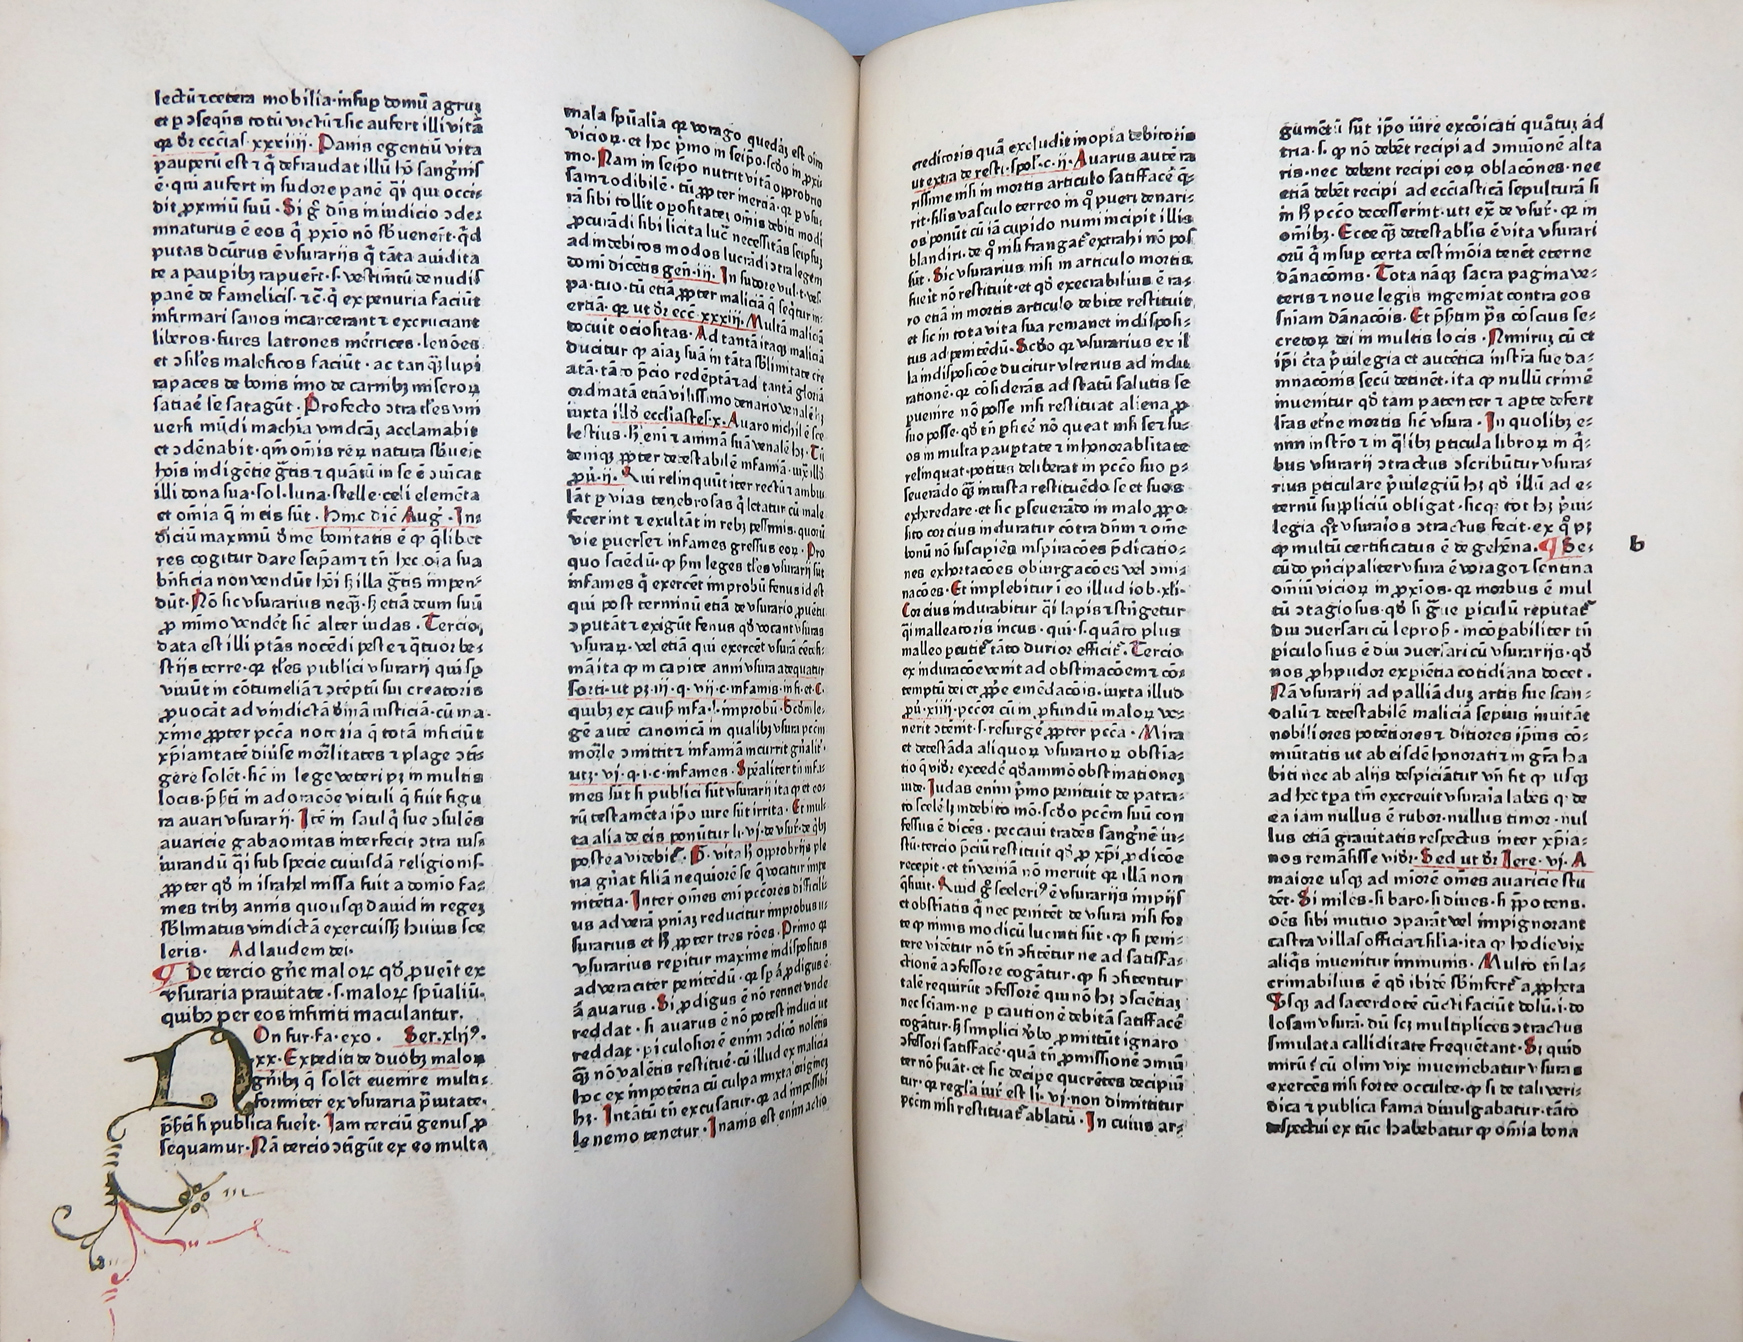 lectū ⁊ cetera mobilia·insuꝑ domū agruꝫ
et ꝑ ↄseqn̄s totū victū ⁊ sic aufert illi vitā
qꝛ dr̄ eccīas·xxxiiii· Panis egentiū vita
pauperū est ⁊ q̄ defraudat illū hō sangnīs
ē·qui aufert in sudore panē q̄i qui occi-
dit ꝓximū suū·Si gͦ dn̄s in iudicio ↄdē-
mnaturus ē eos q̄ ꝓxīo nō sb̄venēt·qͥd
putas dcūrus ē vsurarijs q̄ tāta auidita
te a paupibꝫ rapuer̄t·s·vestim̄tū de nudis
panē de famelicis·⁊c̄·q̄ ex penuria faciūt
infirmari sanos incarcerant ⁊ excruciant
liberos·fures latrones mēt̄rices·lenōes
et ↄsīles maleficos faciūt·ac tanq̄ꝫ lupi
rapaces de bonis imo de carnibꝫ miseroꝝ
satiar̄ se satagūt·Profecto ↄtra tl̄es vni
uersi mūdi machīa vindcāꝫ acclamabit
et ↄdēnabit·qm̄ omīs reꝝ natura sb̄ueīt
hoīs indigētie gr̄tis ⁊ quātū in se ē ↄuīcat
illi dona sua·sol·luna·stelle·celi elemēta
et omīa q̄ in eis sūt·Hinc dic̄ Aug·In-
diciū maximū dīne bonitatis ē ꝙ qͥlibet
res cogitur dare seip̄am ⁊ tn̄ hec oīa sua
bn̄ficia non vendūt hoī sꝫ illa gr̄tis impen-
dūt·Nō sic vsurarius neqꝫ·sꝫ etiā deum suū
ꝓ nimo vendēt sic̄ alter iudas·Tercio
data est illi ptās nocēdi peste ⁊ qͣtuor be-
stijs terre·qꝛ tl̄es publici vsurarij qui sꝑ
viuūt in cōtumeliā ⁊ ↄtēptū sui creatoris
ꝓuocāt ad vindictā diuīnā iusticiā·cū ma-
xime ꝓpter pccā notoria q̄ totā inficiūt
xp̄ianitatē diūse mor̄litates ⁊ plage ↄtī-
gere solēt·sic̄ in lege veteri pꝫ in multis
locis·p̄sīti in adoracōe vituli q̄ fuit figu
ra auari vsurarij·Itē in saul q̄ sue ↄsulēs
auaricie gabaonitas interfecit ↄtra ius-
iurandū q̄i sub specie cuiusdā religionis·
ꝓpter qd̄ in israhel missa fuit a domīo fa-
mes tribꝫ annis quousqꝫ dauid in regeꝫ
sb̄limatus vindictā exercuissꝫ huius sce
leris· Ad laudem dei·
¶ De tercio gn̄e maloꝝ qd̄ ꝓueīt ex
vsuraria prauitate·s·maloꝝ spūaliū·
quibꝫ per eos infiniti maculantur·
NOn fur·fa·exo· Ser·xlijꝰ·
xx·Expediti de duobꝫ maloꝝ
gn̄ibꝫ q̄ solēt euenire multi-
formiter ex vsuraria p̄uitate·
p̄sīti si publica fueīt·Iam terciū genus ꝓ
sequamur·Nā tercio ↄtīgūt ex eo multa
mala spūalia qꝛ vorago quedāꝫ est oīm
vicioꝝ·et hoc pͥmo in seip̄o·scd̄o in ꝓxi
mo·Nam in seip̄o nutrit vitā opprobrio
sam ⁊ odibilē·tū ꝓpter inerciā·qꝛ ꝑ vsu
rā sibi tollit oportunitatē omīs debiti modi
ꝓcurādi sibi licita lucͣ necessitās seipsuꝫ
ad indebitos modos lucrādi ↄtra legem
domī dicētis gen̄·iii· In sudore vul·t·ves·
pa·tuo·tū etiā ꝓpter maliciā q̄ seqͥtur in-
erciā·qꝛ ut dr̄ ecc̄·xxxiii·Multā maliciā
docuit ociositas·Ad tantā itaqꝫ maliciā
ducitur ꝙ aīaꝫ suā in tāta sb̄limitate cre
atā·tāto p̄cio redēptā ⁊ ad tantā gloriā
ordinatā etiā vilissimo denario venalē hꝫ
iuxta illd̄ ecclīastes·x·Auaro nichil ē sce
lestius·hͥ eni ⁊ animā suā venalē hꝫ·Tū
deniqꝫ ꝓpter detestabilē infamiā·iux̄ illd̄
ꝓū·ij·Qui relinquūt iter rectū ⁊ ambu
lāt ꝑ vias tenebrosas q̄ letātur cū male
fecerint ⁊ exultāt in rebꝫ pessimis·quoꝝ
vie puerse ⁊ infames gressus eoꝝ·Pro
quo sciēdū·ꝙ sm̄ leges tl̄es vsurarij sūt
infames q̄ exercēt improbū fenus id est
qui post terminū etiā de vsurario ꝓuētu
ↄputāt ⁊ exigūt fenus qd̄ vocant vsuras
vsuraꝝ·vel etiā qui exercēt vsurā cētesi-
mā ita ꝙ in capite anni vsura adequatur
sorti·ut pꝫ·iii·q·vii·c·infamis·in fi·et·C·
quibꝫ ex caus̄ infa·!·improbū·Scd̄m le-
gē autē canonicā in qualibꝫ vsura pccm̄
mor̄le ↄmittit ⁊ infamiā incurrit gn̄alit̄·
utꝫ·vj·q·i·c·infames·Spēaliter tn̄ infa-
mes sūt hͥ publici sūt vsurarij ita ꝙ et eo-
rū testamēta ip̄o iure sūt irrita·Et mul-
ta alia de eis ponūtur li·vj·de vsur̄·de qͥbꝫ
postea videbit̄·Hͦ·vita hͦ opprobrijs ple
na gn̄at filiā nequiorē se q̄ vocatur impe
nitētia·Inter omēs eni pccōres difficili
us ad verā pnīaꝫ reducitur improbus u-
surarius et hͦ ꝓpter tres rōes·Primo qꝛ
vsurarius repitur maxime indispositus
ad veraciter penitēdū·qꝛ sꝑ aͭ ꝓdigus ē
aͭ auarus·Si ꝓdigus ē nō remet vnde
reddat·si auarus ē nō potest induci ut
reddat·piculosiorē enim ↄdicō nolētis
qͣꝫ nō valētis restituē·cū illud ex malicia
hoc ex impotēcia cū culpa mixta originē
hꝫ·Intātū tn̄ excusatur·qꝛ ad impossibi
le nemo tenetur·Inanis est enim actio
creditoris quā excludit inopia debitoris
ut extra de resti·spol·c·ij·Auarus autē ra
rissime nisi in mortis articulo satisfacē q̄-
rit·silis vasculo terreo in qͦ pueri denari-
os ponūt cū iā cupido numi incipit illis
blandiri·de qͦ nisi frangat̄ extrahi nō pos̄
sūt·Sic vsurarius nisi in articulo mortis
fueīt nō restituit·et qd̄ execrabilius ē ra-
ro etiā in mortis articulo debite restituit
et sic in tota vita sua remanet indisposi-
tus ad penitēdū·Scd̄o qꝛ vsurarius ex il
la indisposicōe ducitur vlterius ad indu
rationē·qꝛ cōsiderās ad statū salutis se
puenire nō posse nisi restituat aliena ꝓ
suo posse·qd̄ tn̄ ꝑficē nō queat nisi se ⁊ su-
os in multa paupertate ⁊ inhonorabilitate
relinquat·potius deliberat in pccō suo ꝑ-
seuerādo qͣꝫ iniusta restituēdo se et suos
exheredare·et sic ꝑseuerādo in malo ꝓpo
sito cor eius induratur cōtra dn̄m ⁊ omē
bonū nō suscipiēs inspiracōes p̄dicatio-
nes exhortacōes obiurgacōes vel ↄmi-
nacōes·Et implebitur i eo illud iob·xli·
Cor eius indurabitur q̄i lapis ⁊ strīgetur
q̄i malleatoris incus·qui·s·quāto plus
malleo ꝑcutit̄ tāto durior efficit̄·Tercio
ex induracōe venit ad obstinacōem ⁊ cō-
temptū dei et ꝓpe emēdacōis·iuxta illud
ꝓū·xiiij·pccōr cū in ꝓfundū maloꝝ ve-
nerit ↄtemit·s·resurge ꝓpter pccā·Mira
et detestāda aliquoꝝ vsurarioꝝ obstīa-
tio q̄ vidr̄ excedē qd̄ammō obstinationeꝫ
iude·Iudas enim pͥmo penituit de patra-
to scelē lꝫ indebito mō·scd̄o pcc̄m suū con
fessus ē dicēs·peccaui tradēs sangnē iu-
stū·tercio p̄ciū restituit qd̄ ꝓ xp̄i ꝓdicōe
recepit·et tn̄ veniā nō meruit qꝛ illā non
q̄siuit·Quid gͦ sceleriꝰ ē vsurarijs impijs
et obstīatis q̄ nec penitēt de vsura nisi for
te ꝙ nimis modicū lucrati sūt·ꝙ si peni-
tere vidētur nō tn̄ ↄfitētur ne ad satisfa-
ctionē a ↄfessore cogātur·ꝙ si ↄfitentur
talē requirūt ↄfessorē qui nō hꝫ ↄsciētiaꝫ
nec sciam·ne ꝑ cautionē debitā satisfacē
cogātur·sꝫ simplici v̄bo ꝓmittūt ignaro
ↄfessori satisfacē·quā tn̄ ꝓmissionē omīū
ter nō s̄uāt·et sic decipe querētes decipiū
tur·qꝛ regl̄a iur̄ est li·vj·non dimittitur
pcc̄m nisi restituat̄ ablatū·In cuius ar-
gumētū sūt ip̄o iure excōicati quātuꝫ ad
tria·s·ꝙ nō debēt recipi ad ↄmunionē alta
ris·nec debent recipi eoꝝ oblacōnes·nec
etiā debēt recipi ad ecclīasticā sepulturā si
in hͦ pccō decesserint·utꝫ ex̄ de vsur̄·qꝛ in
omībꝫ·Ecce qͣꝫ detestabīlis ē vita vsurari
orū q̄ insuꝑ certa testimōia tenēt eterne
dānacōnis·Tota nāqꝫ sacra pagina ve-
teris ⁊ noue legis ingemiat contra eos
sniam dānacōis·Et p̄sītim p̄s cōscius se-
cretoꝝ dei in multis locis·Nimiruꝫ cū et
ip̄i cͣta p̄uilegia et autētica instr̄a sue da-
mnacōnis secū detinēt·ita ꝙ nullū crimē
inuenitur qd̄ tam patenter ⁊ apte defert
lr̄as etr̄ne mortis sic̄ vsura·In quolibꝫ e-
nim instr̄o ⁊ in qͣlibꝫ ꝑticula libroꝝ in qͥ-
bus vsurarij ↄtractus ↄscribūtur vsura-
rius ꝑticulare p̄uilegiū hꝫ qd̄ illū ad e-
ternū suppliciū obligat·sicqꝫ tot hꝫ p̄ui-
legia qͦt vsurarios ↄtractus fecit·ex qͦ pꝫ
ꝙ multū certificatus ē de gehēna·¶ Se-
cūdo pn̄cipaliter vsura ē vorago ⁊ sentina
omīū vicioꝝ in ꝓxīos·qꝛ morbus ē mul
tū ↄtagiosus·qd̄ si gͣue piculū reputat̄
diu ↄuersari cū leprosꝫ·incōpabiliter tn̄
piculosius ē diu ↄuersari cū vsurarijs·qd̄
nos ꝓhpudor expiētia cotidiana docet·
Nā vsurarij ad palliāduꝫ artis sue scan-
dalū ⁊ detestabilē maliciā sepius inuitāt
nobiliores potētiores ⁊ ditiores ip̄ius cō-
munitatis ut ab eisdē honorati ⁊ in gr̄a ha
biti nec ab alijs despiciātur vn̄ fit ꝙ usqꝫ
ad hec tp̄a tn̄ excreuit vsuraīa labes qͥ de
ea iam nullus ē rubor·nullus timor·nul
lus etiā grauitatis respectus inter xp̄ia-
nos remāsisse vidr̄·Sed ut dr̄ Iere·vj·A
maiore usqꝫ ad miorē omēs auaricie stu
dēt·Si miles·si baro·si diues·si p̄potens·
oēs sibi mutuo ↄparāt vel impignorant
castra villas officia ⁊ silia·ita ꝙ hodie vix
aliqͥs inuenitur immunis·Multo tn̄ la-
crimabilius ē qd̄ ibidē sb̄infert̄ a ꝓpheta
Vsqꝫ ad sacerdotē cūcti faciūt dolū·i·do
losam vsurā·dū scꝫ multiplices ↄtractus
simulata calliditate frequētant·Si quid
mirū? cū olim vix inueniebatur vsuras
exercēs nisi forte occulte·ꝙ si de tali veri-
dica ⁊ publica fama diuulgabatur·tāto
despectui ex tūc habebatur ꝙ omīa bona
b